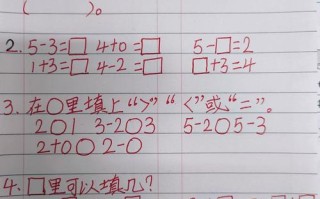 (      )。
2. 5-3=□ 4+0=□ 5-□=2
1+3=□ 4-2=□ □+3=4
3. 在○里填上“>”“<”或“=”。
2○1 3-2○3 5-2○5-3
2+0○2-0
4. □里可以填几?